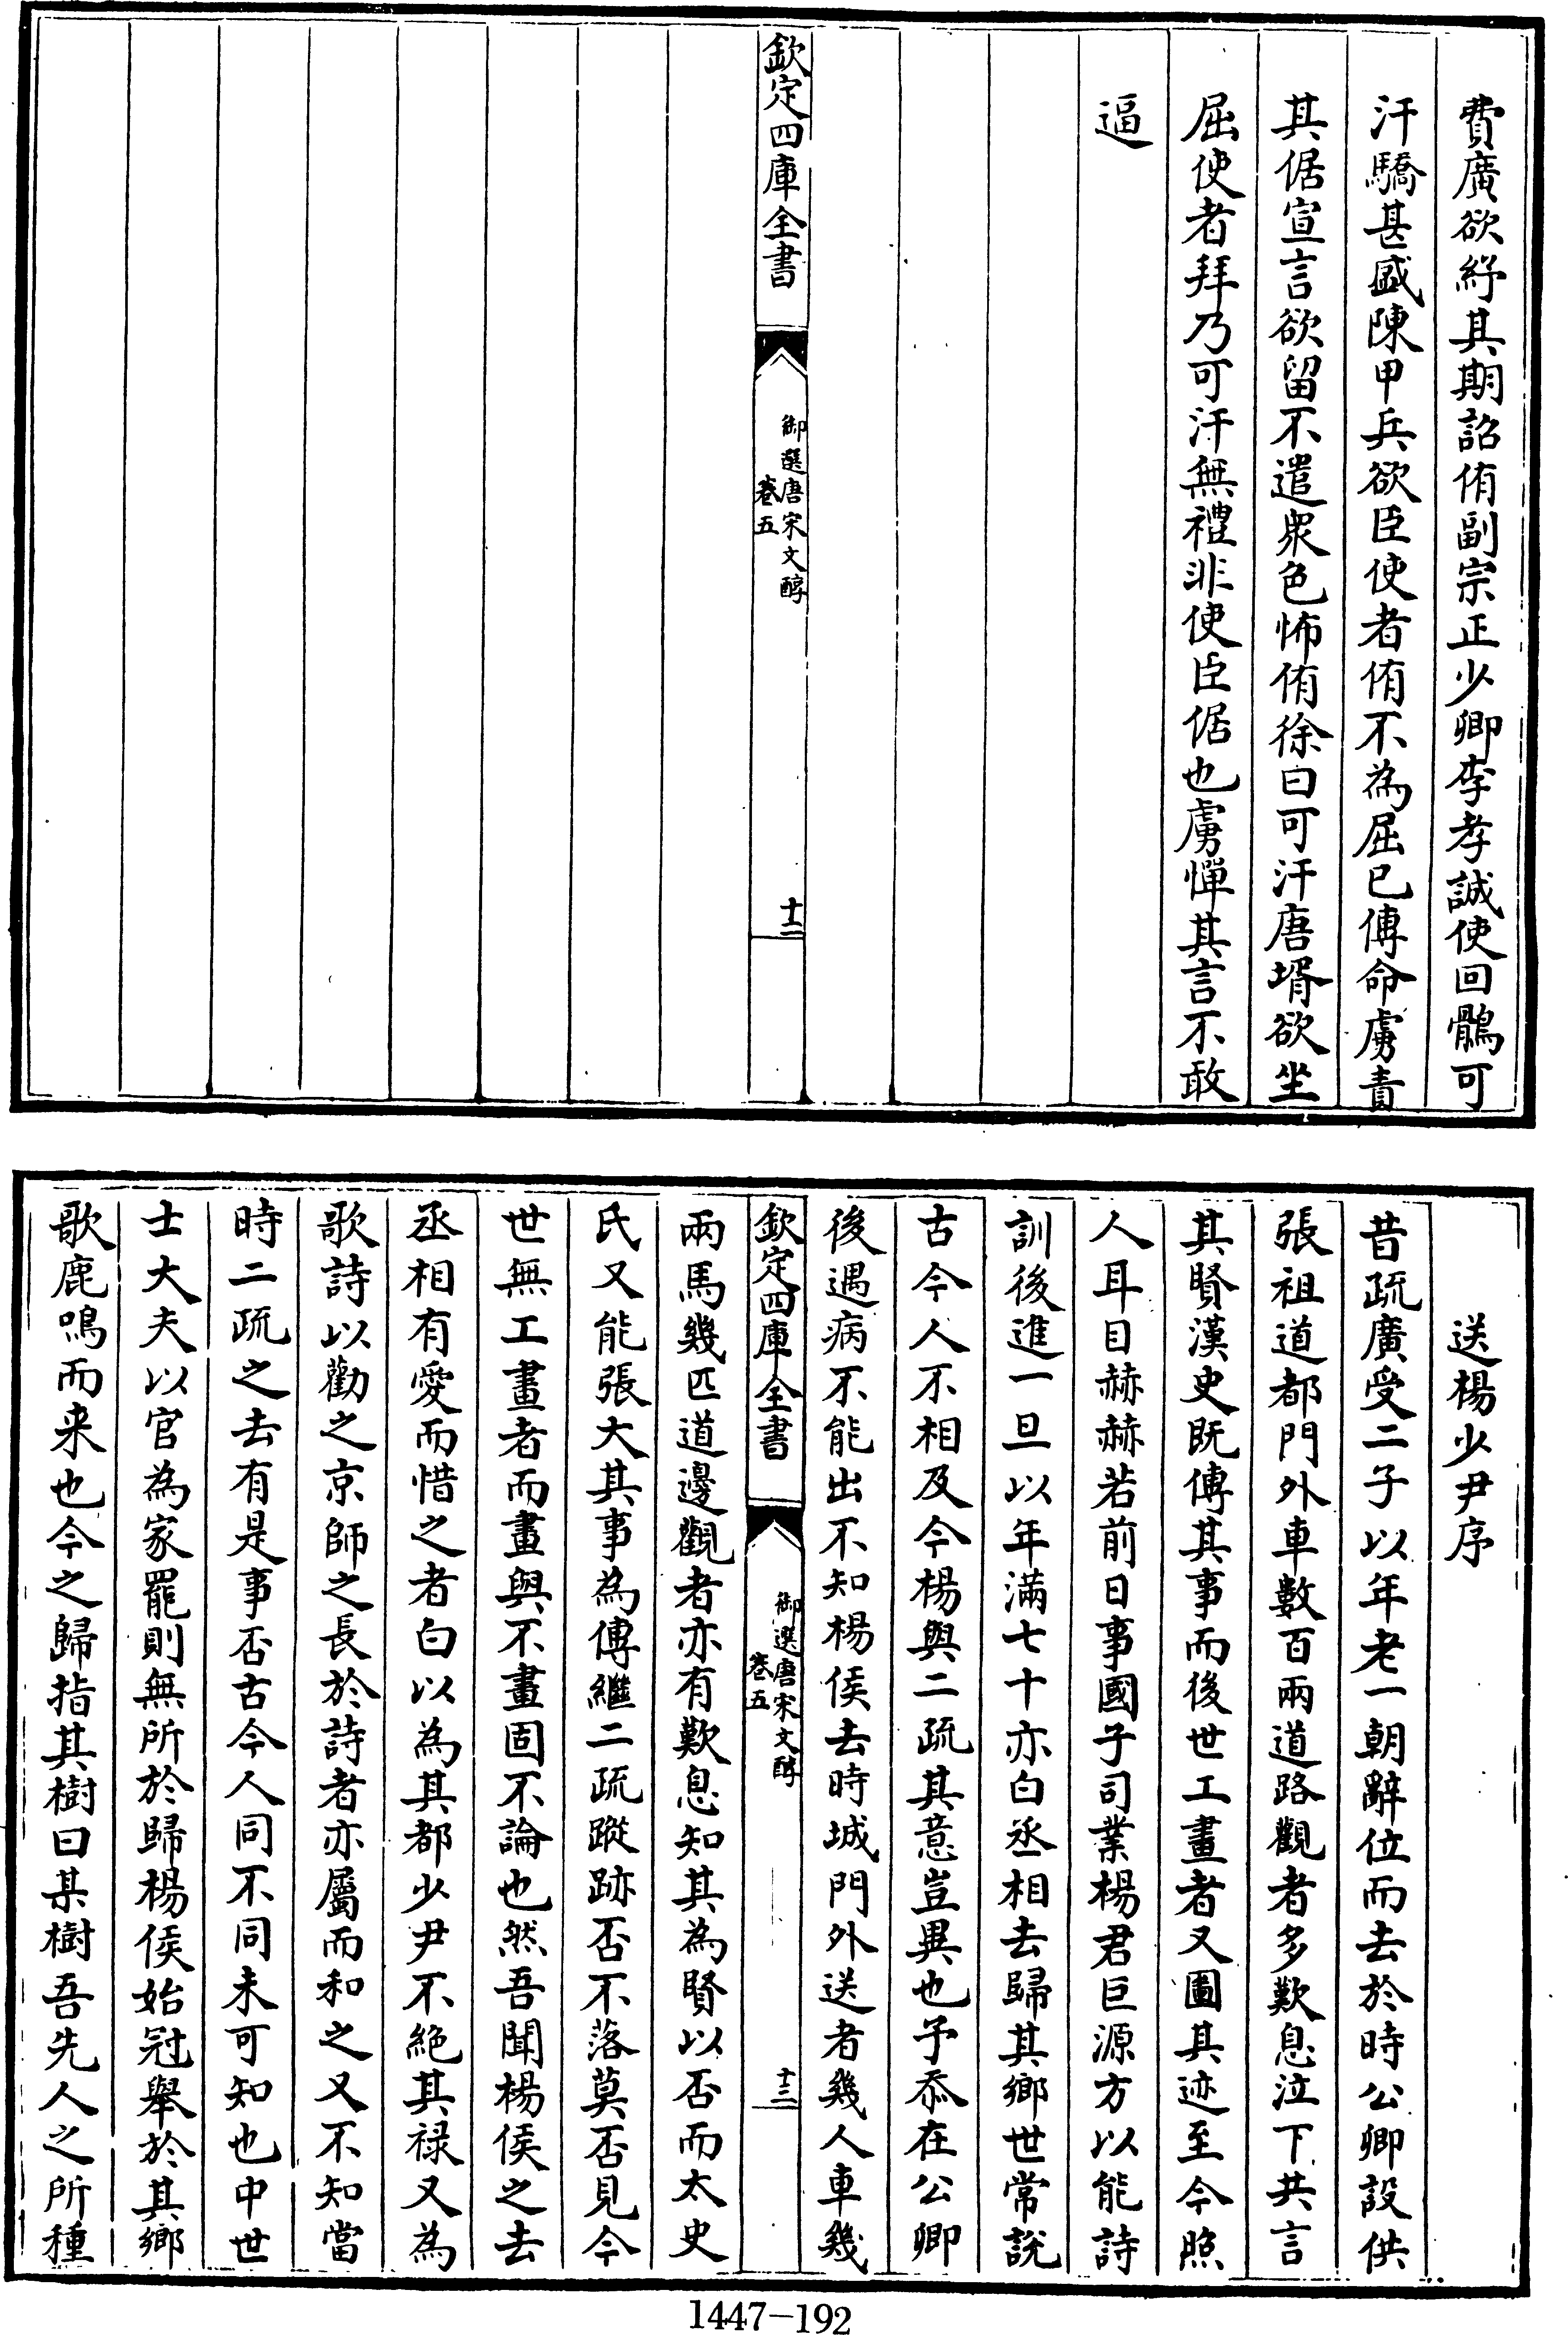 費廣欲紓其期詔侑副宗正少卿李孝誠使回鶻可
汗驕甚盛陳甲兵欲臣使者侑不為屈已傳命虜責
其倨宣言欲留不遣衆色怖侑徐曰可汗唐壻欲坐
屈使者拜乃可汗無禮非使臣倨也虜憚其言不敢
逼
欽定四庫全書
御選唐宋文醇
卷五
十二
送楊少尹序
昔疏廣受二子以年老一朝辭位而去於時公卿設供
張祖道都門外車數百兩道路觀者多歎息泣下共言
其賢漢史既傳其事而後世工畫者又圖其迹至今照
人耳目赫赫若前日事國子司業楊君巨源方以能詩
訓後進一旦以年滿七十亦白丞相去歸其鄉世常說
古今人不相及今楊與二疏其意豈異也予忝在公卿
後遇病不能出不知楊侯去時城門外送者幾人車幾
欽定四庫全書
御選唐宋文醇
卷五
十三
兩馬幾匹道邊觀者亦有歎息知其為賢以否而太史
氏又能張大其事為傳繼二疏蹤跡否不落莫否見今
世無工畫者而畫與不畫固不論也然吾聞楊侯之去
丞相有愛而惜之者白以為其都少尹不絶其禄又為
歌詩以勸之京師之長於詩者亦屬而和之又不知當
時二疏之去有是事否古今人同不同未可知也中世
士大夫以官為家罷則無所於歸楊侯始冠舉於其鄉
歌鹿鳴而来也今之歸指其樹曰某樹吾先人之所種
1447-192